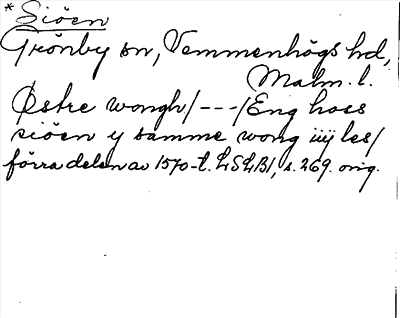 * Siöen
Grönby sn, Vemmenhögs hd,
Malm. l.
Østre wongh/---/Eng hoes
siöen y samme wong iiij les/
förra delen av 1570-t. LSLB1, s. 269. orig.